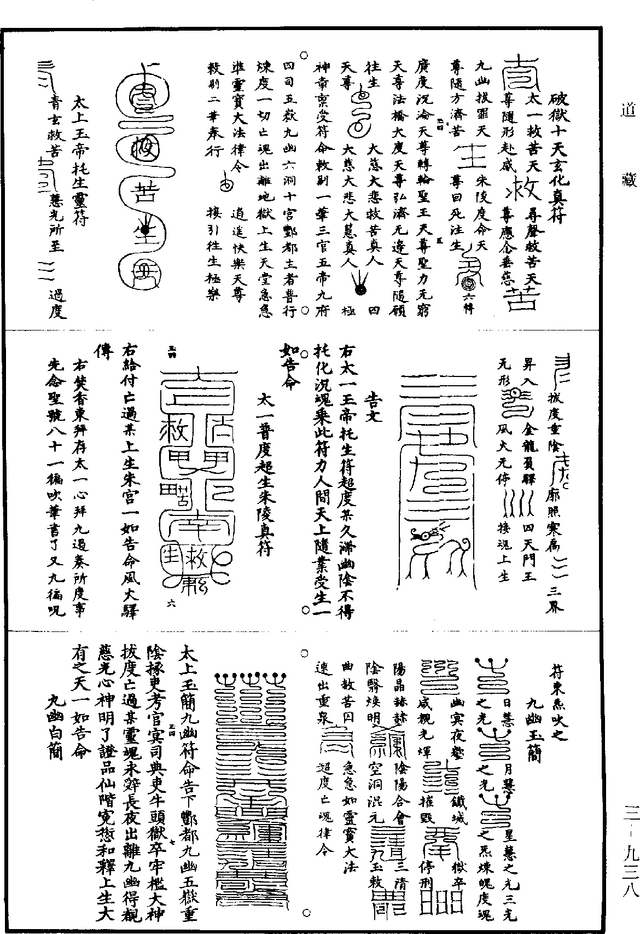 道藏
破獄十天玄化真符
太一救苦天尊隨形赴感
尋聲救苦天尊應念垂慈
九幽拔罪天尊隨方濟苦
朱陵度命天尊回死注生
廣度沉淪天尊轉輪聖王天尊聖力无窮
天尊法橋大度天尊弘濟无邊天尊隨願
往生
大慈大悲救苦真人
四
天尊
大慈大悲大惠真人
極
神帝稟受符命敕副一華三官五帝九府
四司五嶽九幽六洞十宮酆都主者普行
煉度一切亡魂出離地獄上生天堂急急
準靈寶大法律令
逍遥快樂天尊
敕副二華奉行
接引往生極樂
太上玉帝托生靈符
青玄救苦
慈光所至
過度
拔度重陰
廓照寒庭
三界
昇入
金龍負驛
四天門王
无形
風火无停
接魂上生
告文
右太一玉帝托生符超度某久滯幽陰不得
托化沉魂乘此符力人間天上隨業受生一
如告命
太一普度超生朱陵真符
右給付亡過某上生朱宮一如告命風火驛
傳
右焚香東拜存太一心拜九過奏所度事
先念聖號八十一徧吹筆書了又九徧呪
符東炁吹之
九幽玉簡
日慧之光
月慧之光
星慧之光三光之炁煉魄度魂
幽冥夜壑咸覩光輝
鐵城摧毀
獄卒停刑
陽晶赫赫陰翳煥明
陰陽合會空洞混元
三清玉敕
曲赦苦囚速出重泉
急急如靈寶大法
超度亡魂律令
太上玉簡九幽符命告下酆都九幽五獄重
陰掾吏考官冥司典吏牛頭獄卒牢檻大神
拔度亡過某靈魂永辭長夜出離九幽得覩
慈光心神明了證品仙階寃愆和釋上生大
有之天一如告命
九幽白簡
三—九三八